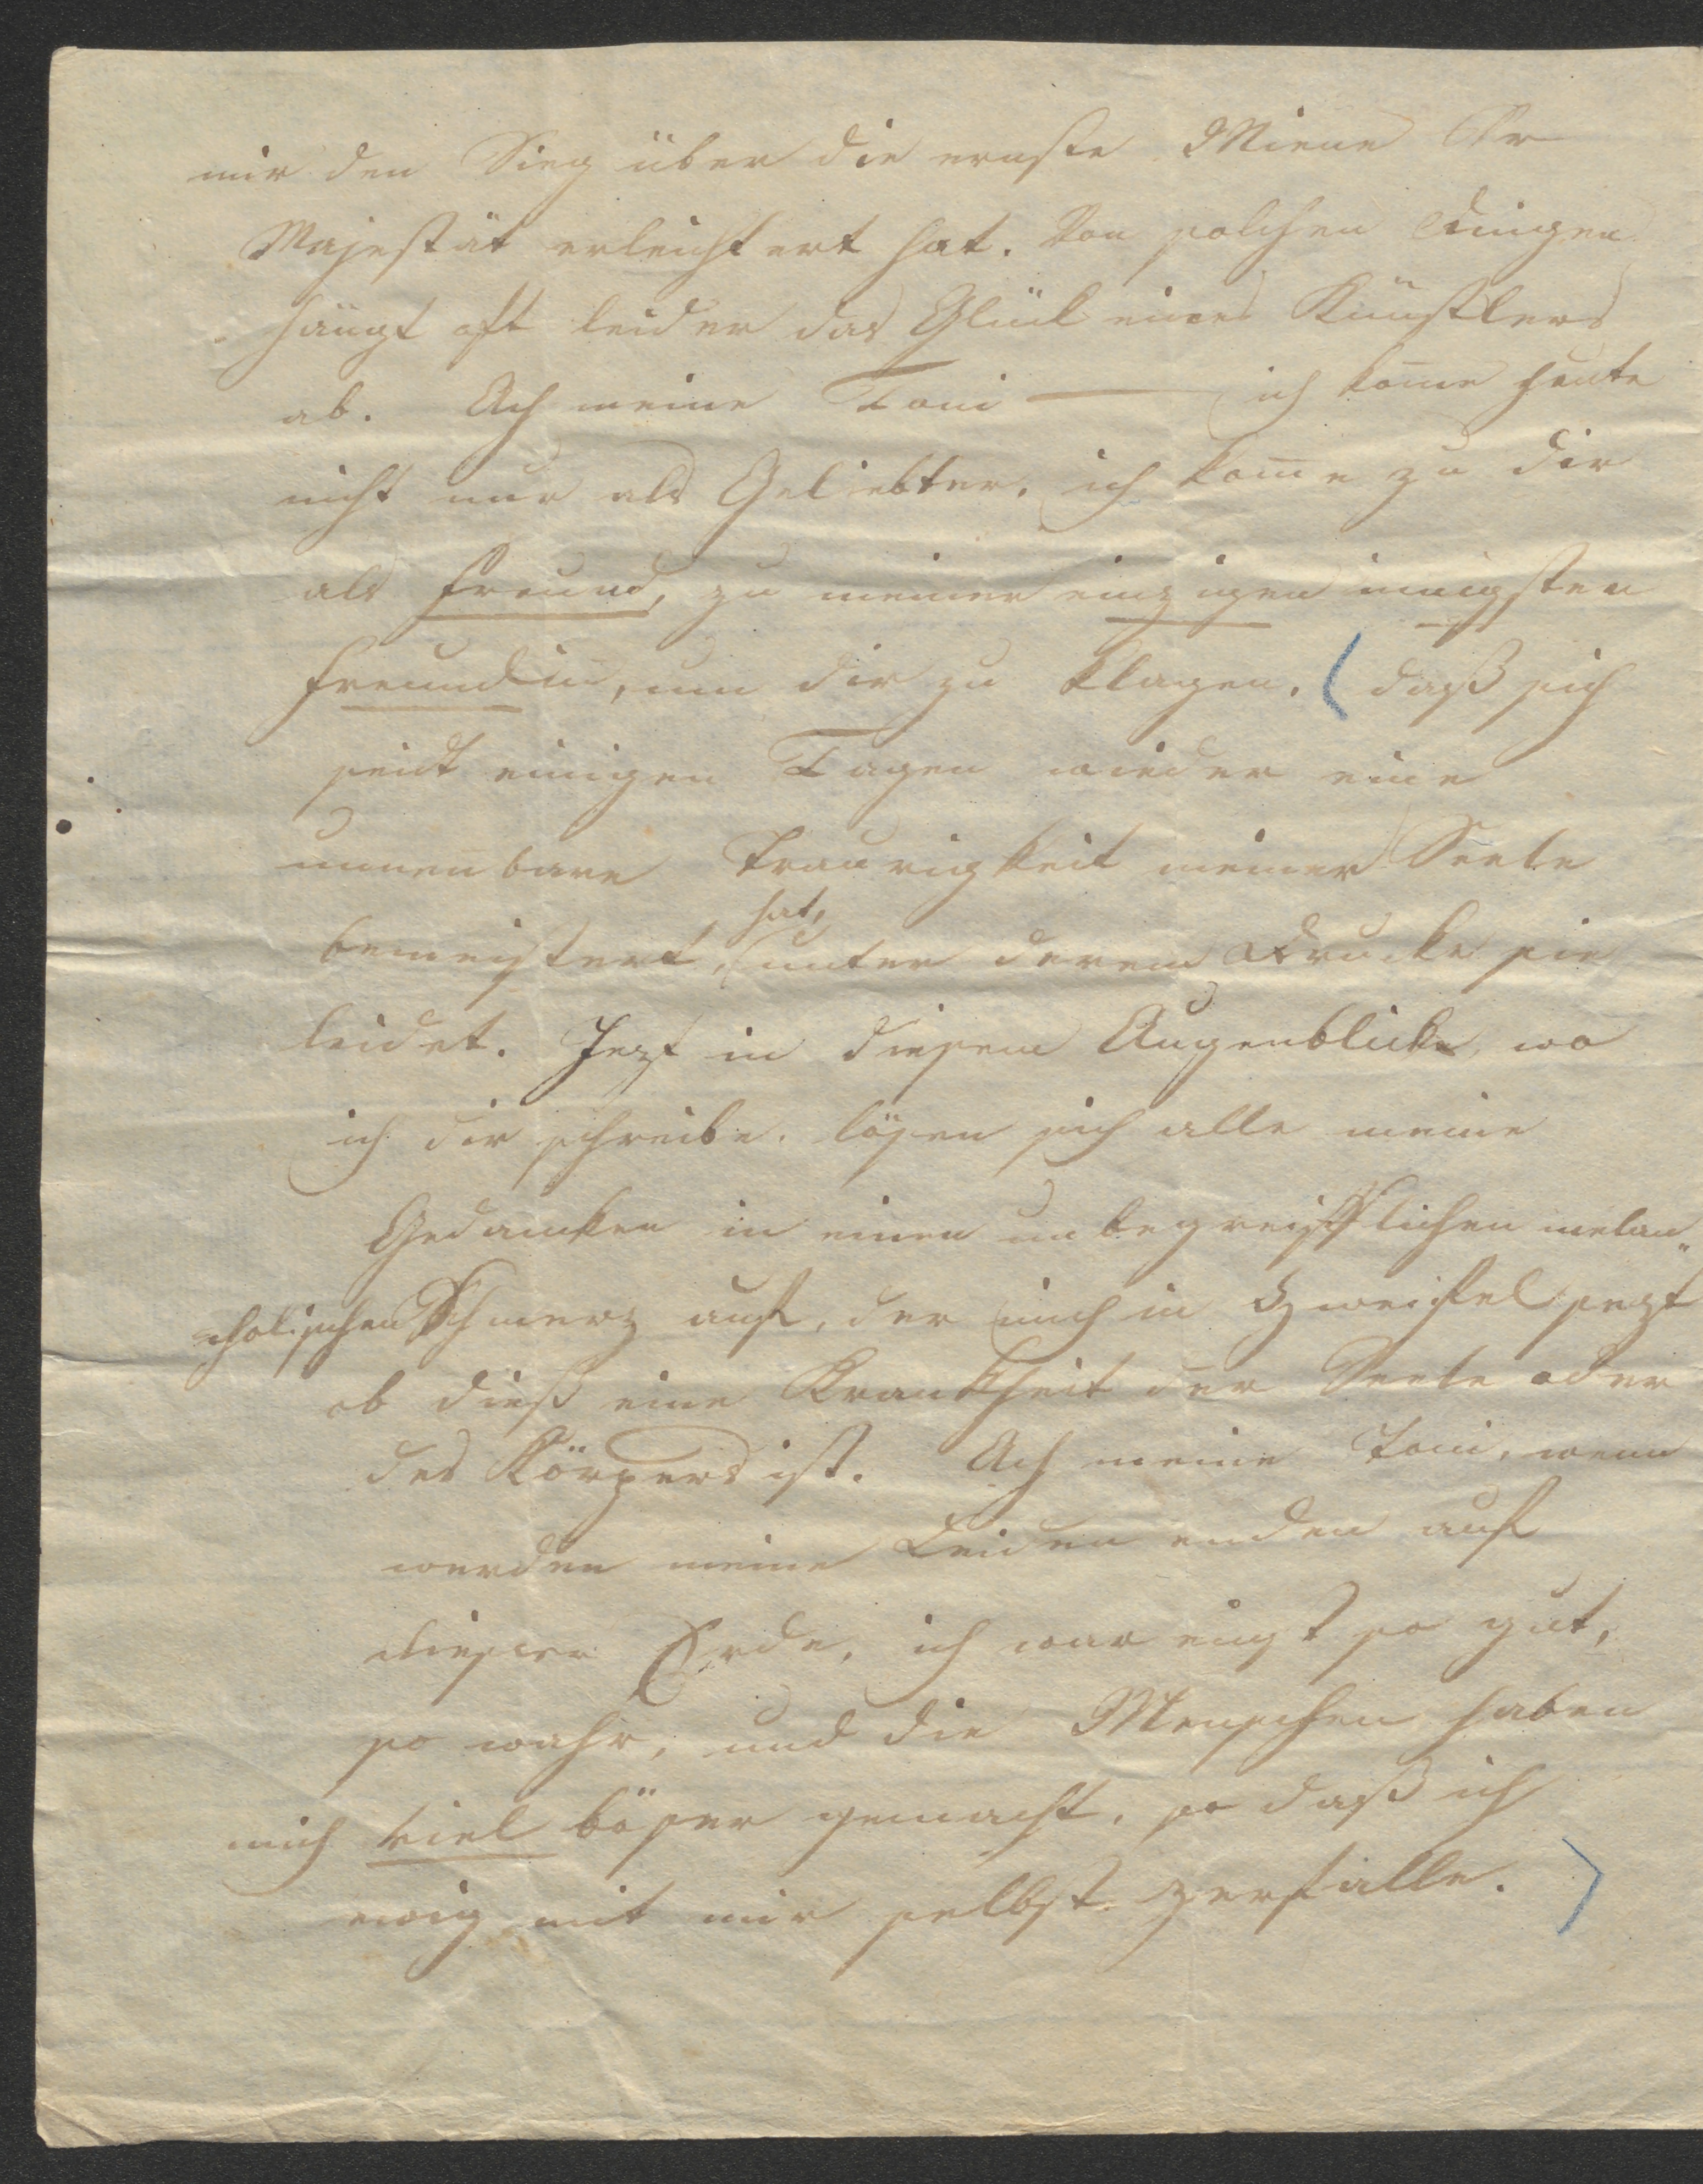 mir den Sieg über die ernste Miene Sr
Majestät erleichtert hat. Von solchen Dingen
hängt oft leider das Glück eines Künstlers
ab. Ach meine Toni — ich kom̄e heute
nicht nur als Geliebter, ich kom̄e zu dir
als Freund, zu meiner einzigen innigsten
Freundin, um dir zu klagen. (daß sich
seidt einigen Tagen wieder eine
unnenbare Traurigkeit meiner Seele
bemeistert hat, unter derem Drucke sie
leidet. Jezt in diesem Augenblicke, wo
ich dir schreibe, lösen sich alle meine
Gedancken in einen unbegreifflichen melan„
cholischen Schmerz auf, der mich in Zweifel sezt
ob dieß eine Krankheit der Seele oder
des Körpers ist. Ach meine Toni, wenn
werden meine Leiden enden auf
dieser Erde, ich war einst so gut,
so wahr, und die Menschen haben
mich viel böser gemacht, so daß ich
ewig mit mir selbst zerfalle. )